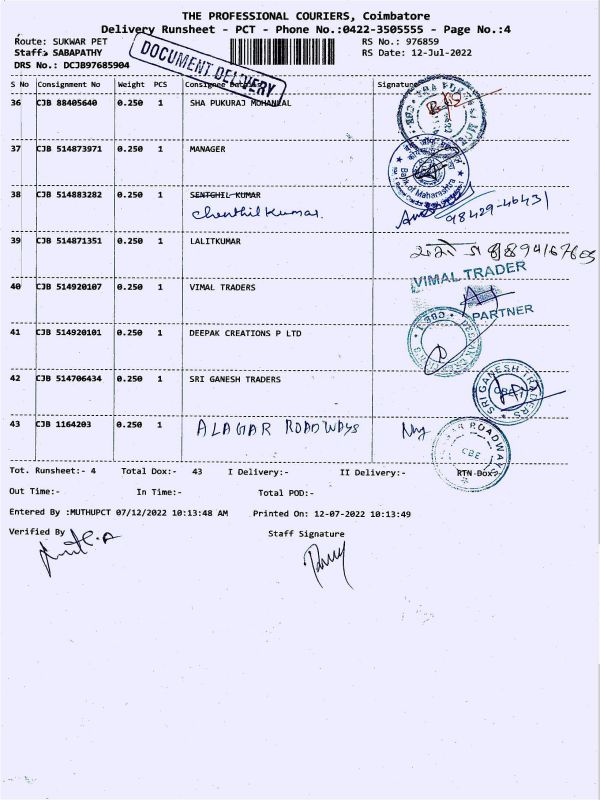 THE PROFESSIONAL COURIERS, Coimbatore
Delivery Runsheet - PCT - Phone No.:0422-3505555 - Page No.:4
Route: SUKWAR PET
RS No.: 976859
Staff: SABAPATHY
RS Date: 12-Jul-2022
DRS No.: DCJB97685904
DOCUMENT DELIVERY
S No Consignment No Weight PCS Consignee Signature
36 CJB 88405640 0.250 1 SHA PUKURAJ MOHANLAL
37 CJB 514873971 0.250 1 MANAGER
Bank of Maharashtra
38 CJB 514883282 0.250 1 SENTGHIL KUMAR
Chenthil Kumar.
98429-46431
39 CJB 514871351 0.250 1 LALITKUMAR
40 CJB 514920107 0.250 1 VIMAL TRADERS
VIMAL TRADER
PARTNER
41 CJB 514920101 0.250 1 DEEPAK CREATIONS P LTD
42 CJB 514706434 0.250 1 SRI GANESH TRADERS
SRI GANESH TRADERS
43 CJB 1164203 0.250 1 ALAGAR ROADWAYS
ROADWAYS
CBE
Tot. Runsheet:- 4 Total Dox:- 43 I Delivery:- II Delivery:- RTN Dox:-
Out Time:- In Time:- Total POD:-
Entered By :MUTHUPCT 07/12/2022 10:13:48 AM Printed On: 12-07-2022 10:13:49
Verified By Staff Signature